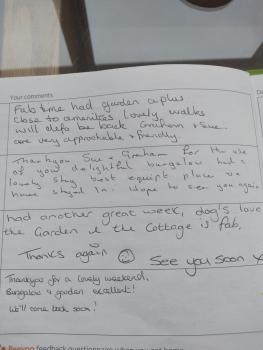 Your comments
Fab time had garden a plus
close to amenities Lovely walks
will defo be back Graham & Sue
are very approachable & friendly.
Thankyou Sue & Graham for the use
of your delightful bungalow had a
lovely stay best equipt place we
have stayed in. Hope to see you again
had another great week, dog's love
the Garden & the Cottage is fab.
Thanks again ☺ See you soon x
Thankyou for a lovely weekend,
Bungalow & garden excellent!
We'll come back soon!
feedback questionnaire